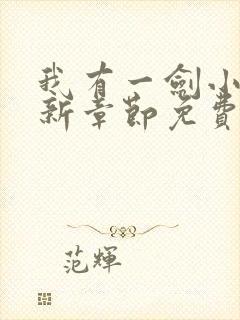 我有一劍小
新章節免費
范輝